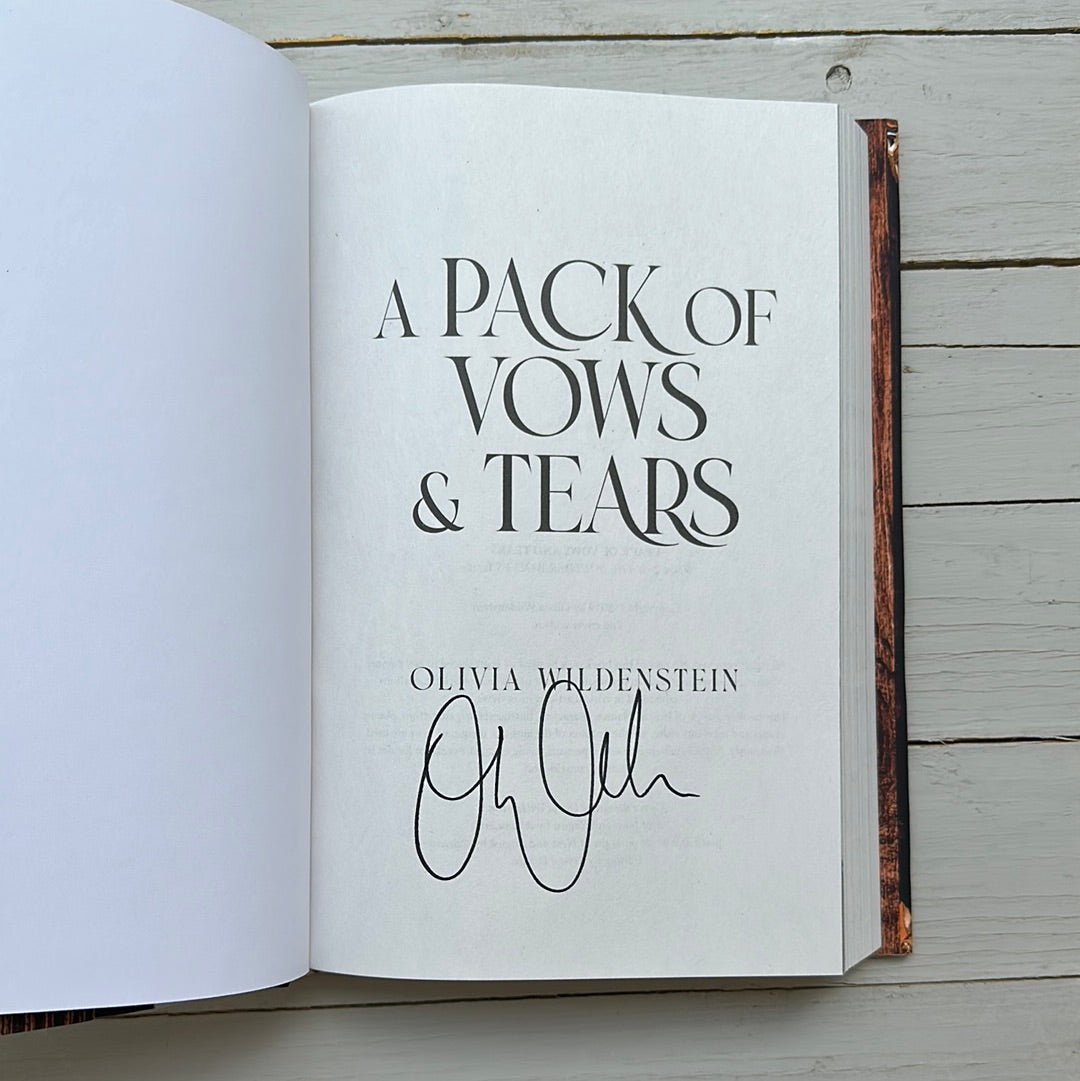 A PACK OF
VOWS
& TEARS
OLIVIA WILDENSTEIN